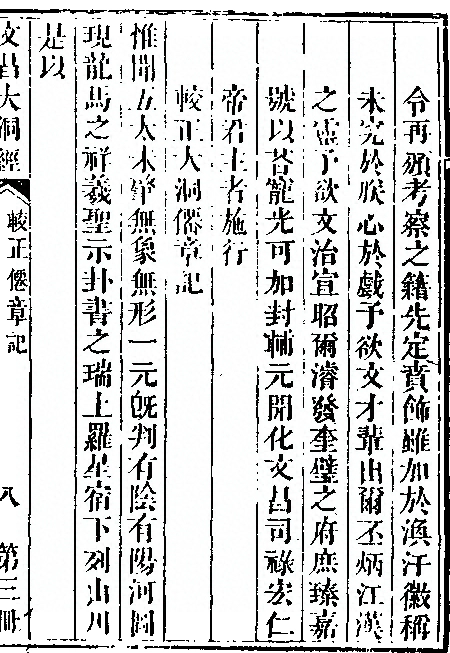 令再頒考察之籍先定賁飾雖加於渙汗徽稱
未究於朕心於戲予欲文才輩出爾丕炳江漢
之靈予欲文治宣昭爾濬發奎璧之府庶臻嘉
號以荅寵光可加封輔元開化文昌司祿宏仁
帝君主者施行
較正大洞僊章記
惟開五太未肇無象無形一元旣判有陰有陽河圖
現龍馬之祥羲聖示卦書之瑞上羅星宿下列山川
是以
文昌大洞經
較正僊章記
八
第三冊